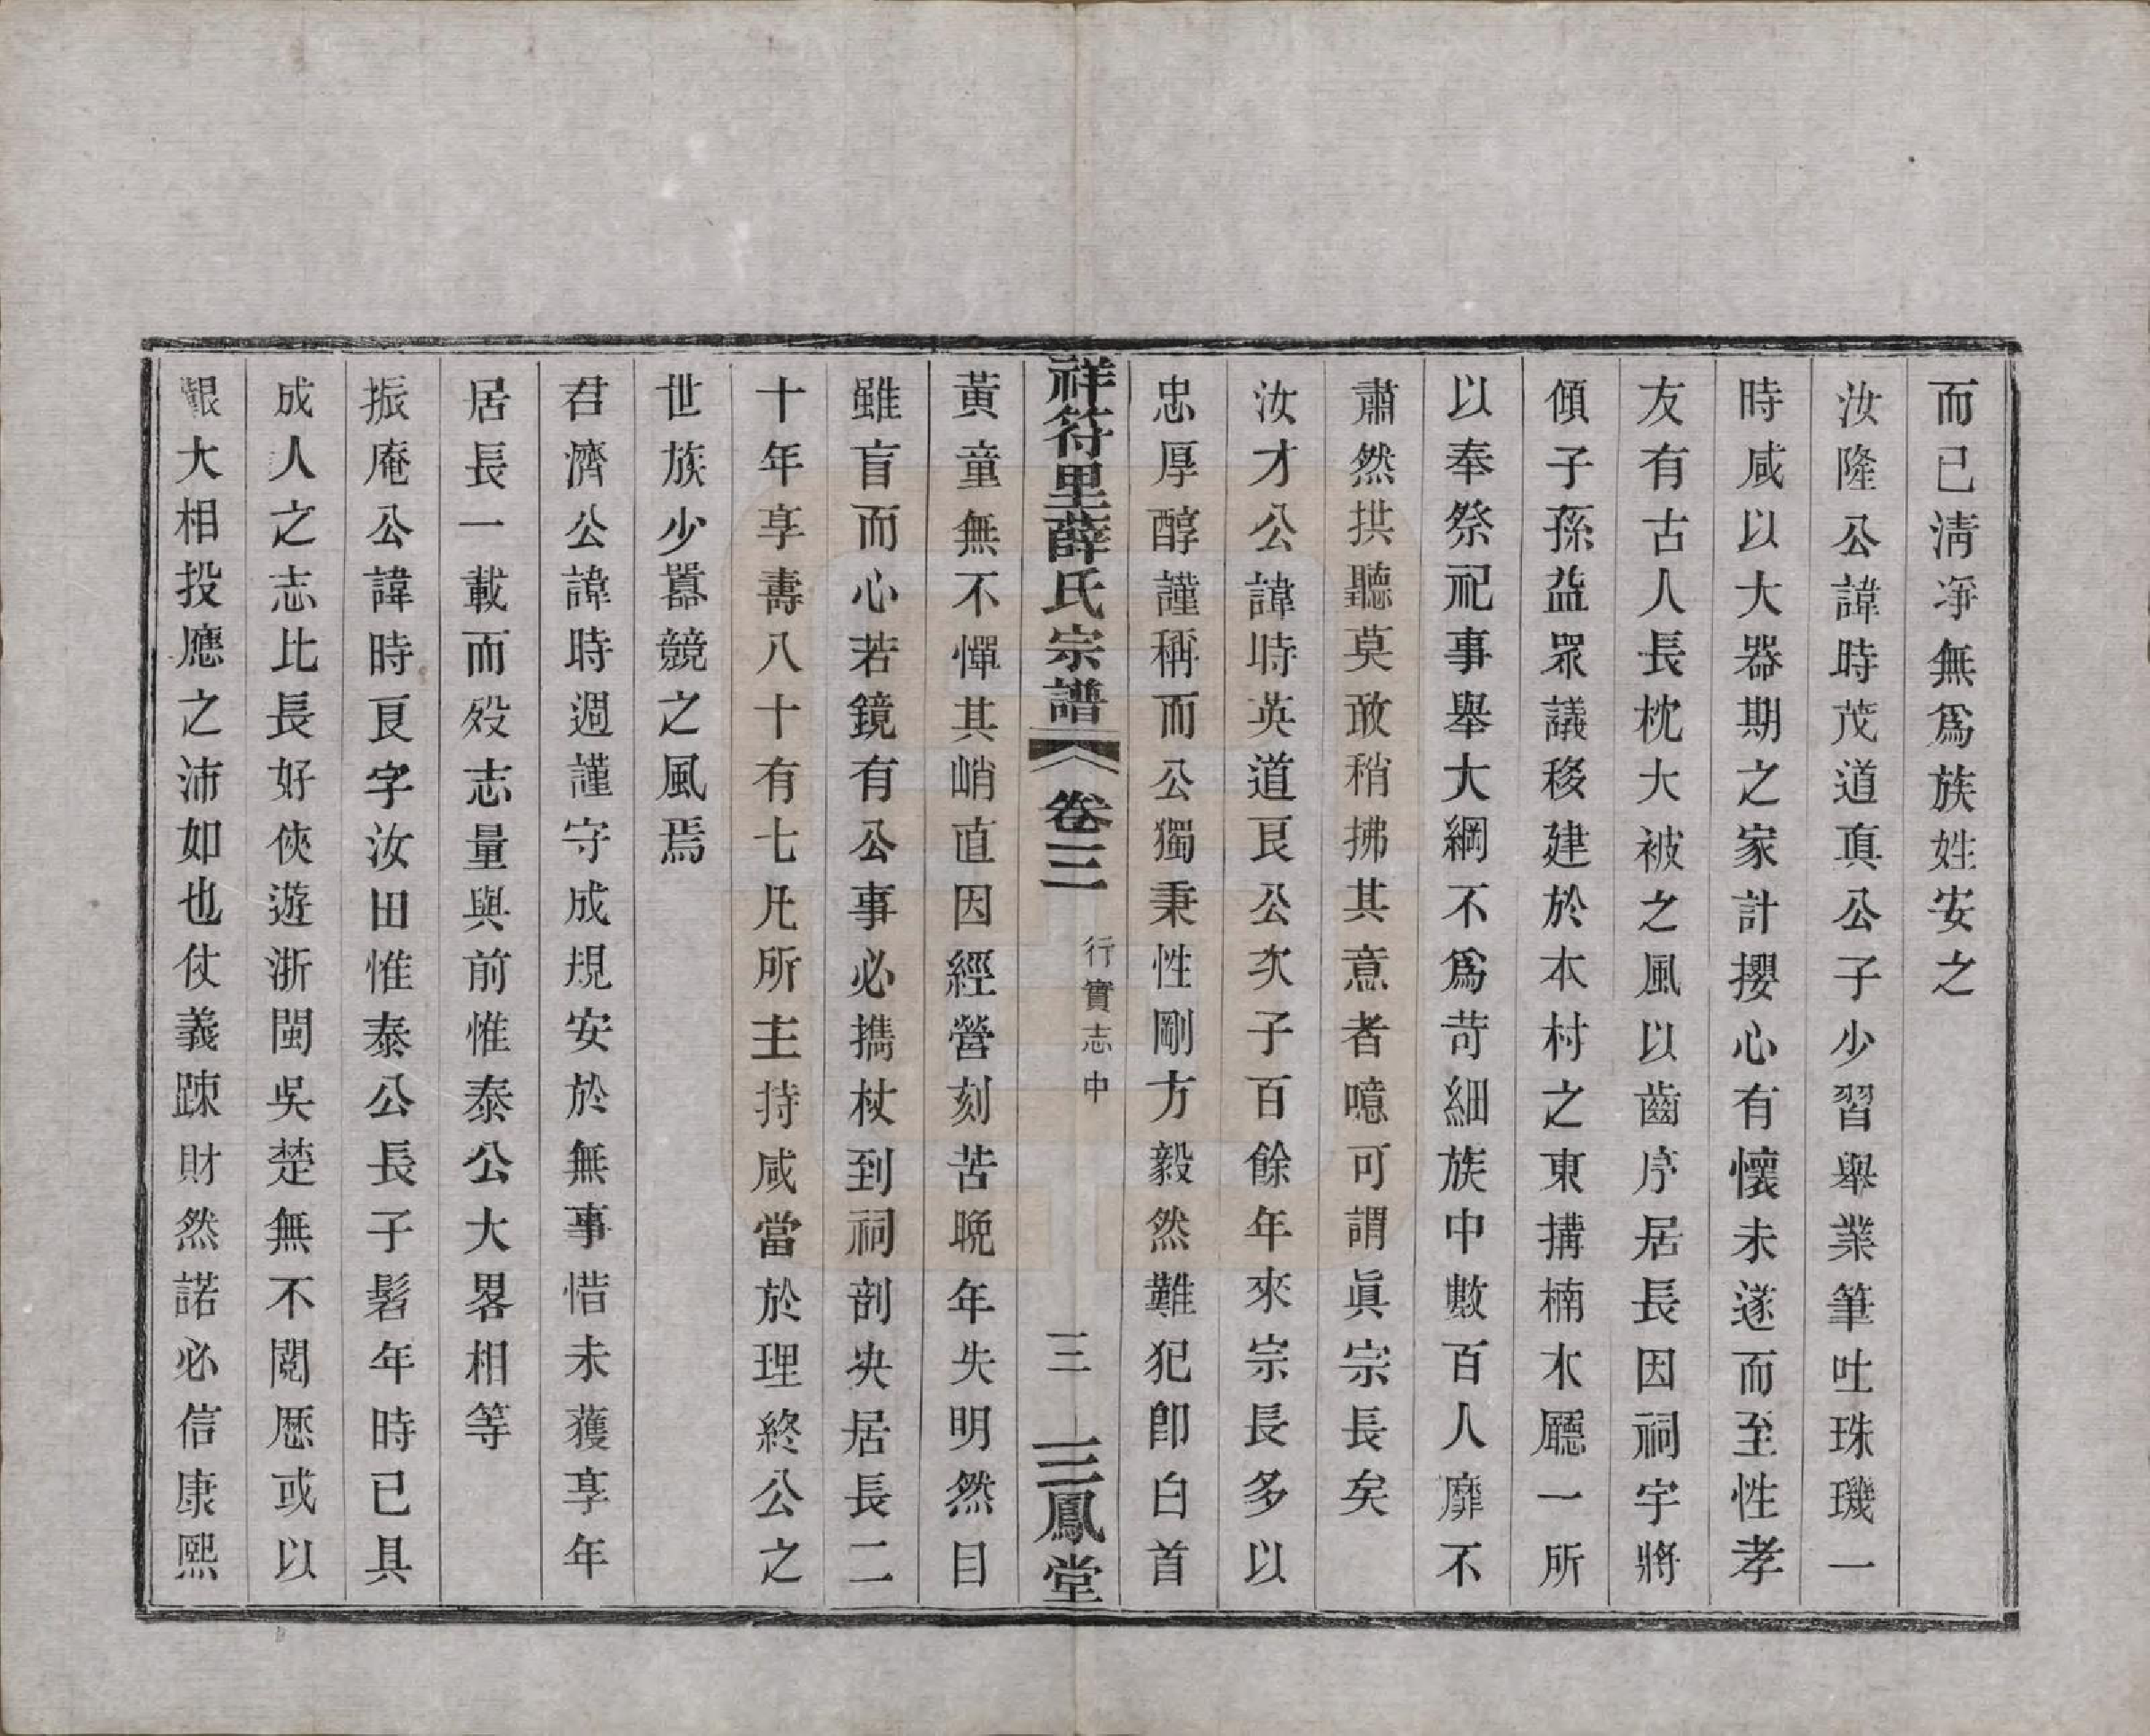 而已淸凈無爲族姓安之
汝隆公諱時茂道真公子少習舉業筆吐珠璣一
時咸以大器期之家計攖心有懷未遂而至性孝
友有古人長枕大被之風以齒序居長因祠宇將
傾子孫益眾議移建於本村之東搆楠木廳一所
以奉祭祀事舉大綱不爲苛細族中數百人靡不
肅然拱聽莫敢稍拂其意者噫可謂眞宗長矣
汝才公諱時英道艮公次子百餘年來宗長多以
忠厚醇謹稱而公獨秉性剛方毅然難犯卽白首
祥符里薛氏宗譜 卷三 行實志中 三 三鳳堂
黃童無不憚其峭直因經營刻苦晩年失明然目
雖盲而心若鏡有公事必攜杖到祠剖夬居長二
十年享壽八十有七凡所主持咸當於理終公之
世族少囂競之風焉
君濟公諱時週謹守成規安於無事惜未獲享年
居長一載而歿志量與前惟泰公大畧相等
振庵公諱時良字汝田惟泰公長子髫年時已具
成人之志比長好俠遊浙閩吳楚無不閱歷或以
艱大相投應之沛如也仗義踈財然諾必信康熙